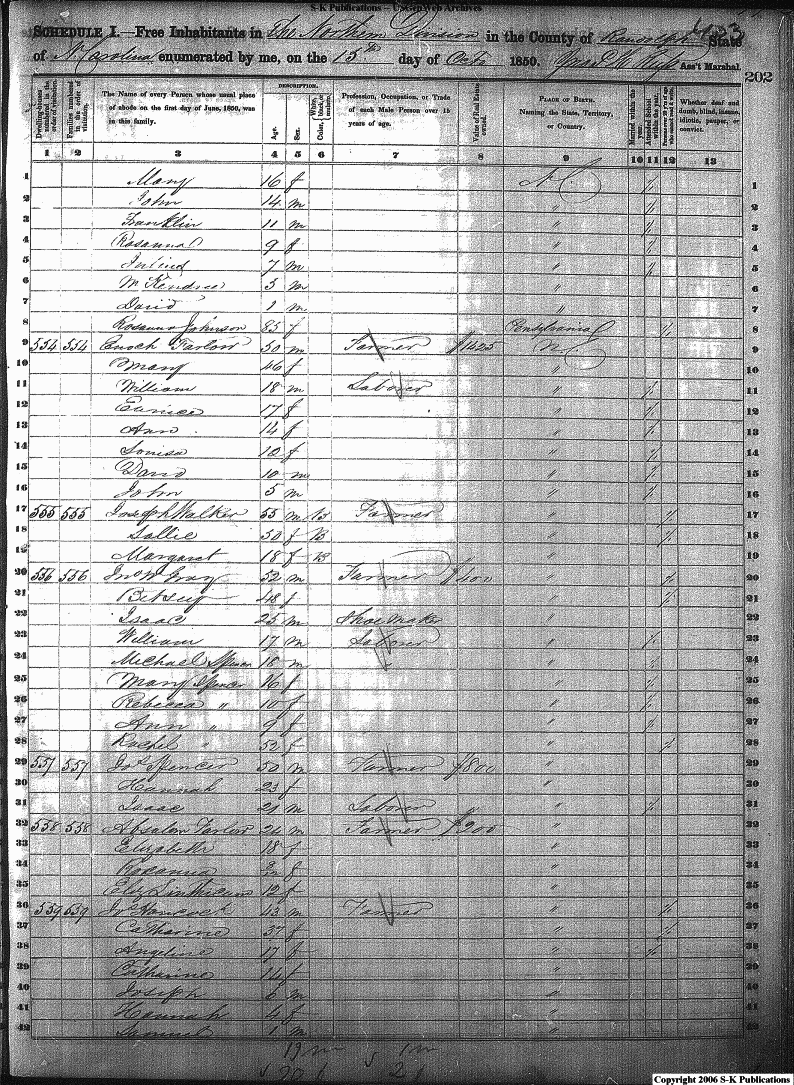 S-K Publications -- UsGenWeb Archives
SCHEDULE I.—Free Inhabitants in The Northern Division in the County of Randolph State
of N. Carolina enumerated by me, on the 15th day of Oct 1850. Ass't Marshal.
202
DESCRIPTION.
Dwelling-houses numbered in the order of visitation.
Families numbered in the order of visitation.
The Name of every Person whose usual place of abode on the first day of June, 1850, was in this family.
Age.
Sex.
Color, White, black, or mulatto.
Profession, Occupation, or Trade of each Male Person over 15 years of age.
Value of Real Estate owned.
PLACE OF BIRTH. Naming the State, Territory, or Country.
Married within the year.
Attended School within the year.
Whether deaf and dumb, blind, insane, idiotic, pauper, or convict.
1 2 3 4 5 6 7 8 9 10 11 12 13
1 Mary 16 f N C / 1
2 John 14 m " / 2
3 Franklin 11 m " / 3
4 Rosanna 9 f " / 4
5 Julius 7 m " / 5
6 McKendree m " 6
7 David 1 m " 7
8 Rosanna Johnson 85 f Pensylvania / 8
9 554 554 Enoch Farlow 50 m Farmer $1425 N. C 9
10 Mary 46 f " 10
11 William 18 m Laborer " / 11
12 Eunice 17 f " / 12
13 Ann 14 f " / 13
14 Louisa 10 f " / 14
15 David 10 m " / 15
16 John 5 m " / 16
17 555 555 Joseph Walker 55 m B Farmer " / 17
18 Sallie 50 f B " / 18
19 Margaret 18 f B " 19
20 556 556 Jno W Gray 52 m Farmer $400 " / 20
21 Betsey 48 f " / 21
22 Isaac 25 m Shoe maker " 22
23 William 17 m Laborer " / 23
24 Michael Spencer 18 m " / 24
25 Mary Spencer 16 f " / 25
26 Rebecca " 10 f " / 26
27 Ann " 9 f " / 27
28 Rachel " 52 f " / 28
29 557 557 Jos Spencer 50 m Farmer $800 " 29
30 Hannah 23 f " 30
31 Isaac 21 m Laborer " / 31
32 558 558 Absalom Farlow 24 m Farmer $200 " 32
33 Elizabeth 18 f " 33
34 Roxanna f " 34
35 Linthicum 12 f " 35
36 559 559 Jos Hancock 43 m Farmer " / 36
37 Catharine 37 f " / 37
38 Angeline 17 f " / 38
39 Catharine 14 f " 39
40 Joseph 6 m " 40
41 Hannah 4 f " 41
42 Samuel 1 m " 42
19 m 1 m
Copyright 2006 S-K Publications